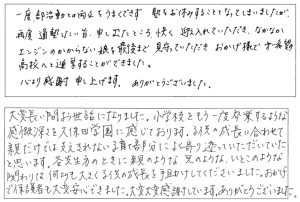 一度部活動との両立をうまくできず 塾をお休みすることとなってしまいましたが、
再度通塾したい旨、申し出たところ、快く迎え入れていただき、なかなか
エンジンのかからない様を最後まで見守っていただき おかげ様で 第一希望
高校へと進学することができました。
心より感謝 申し上げます。 ありがとうございました。
大変長い間お世話になりました。小学校をもう一度卒業するような
感慨深さを久保田学園に感じております。子供の成長に合わせて
親だけでは支えきれない有る部分によく寄り添っていただいていた
と思います。各先生方のときに親のような 兄のような、いとこのような
関わりは何よりも大きく子供の成長を手助けしてくださいました。おかげ
で保護者も大変安心でした。大変大変感謝しています。ありがとうございました。